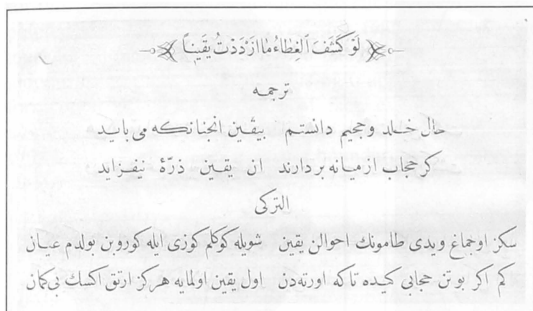 لَوْ كُشِفَ ٱلْغِطَاءُ مَا ٱزْدَدْتُ يَقِينًا
ترجمه
حال خلد وجحيم دانستم بيقين انجنانكه مى بايد
كر حجاب ازميانه بردارند ان يقين ذرّهٔ نيفزايد
التركى
سكز اوجماغ ويدى طامونك احوالن يقين شويله كوكلم كوزى ايله كوروبن بولدم عيان
كم اكر بو تن حجابى كيده تاكه اورته‌دن اول يقين اولمايه هركز ارتق اكسك بى كمان